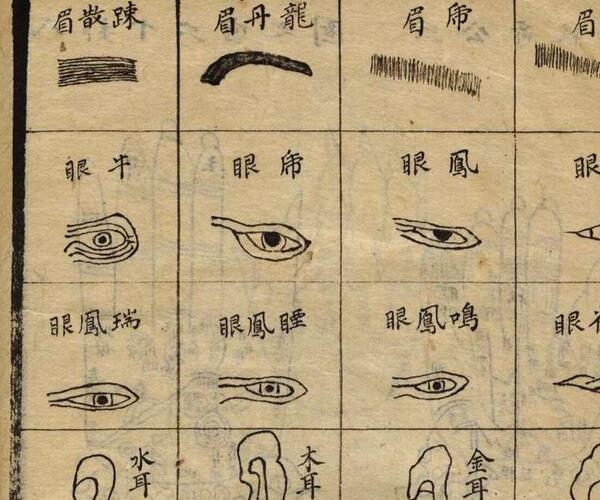 眉
帍眉
龍丹眉
踈散眉
眼
鳳眼
帍眼
牛眼
眼
鳴鳳眼
睡鳳眼
瑞鳳眼
金耳
木耳
水耳